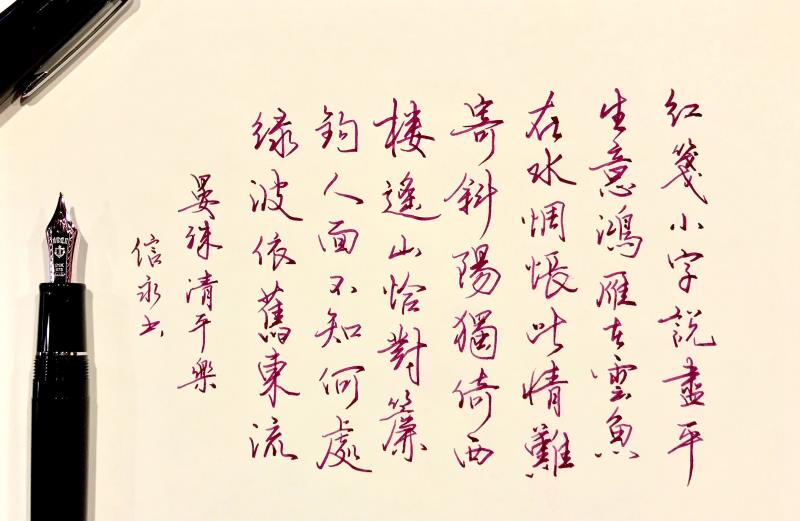 紅箋小字說盡平
生意鴻雁在雲魚
在水惆悵此情難
寄斜陽獨倚西
樓遙山恰對簾
鉤人面不知何處
綠波依舊東流
晏殊清平樂
信永書